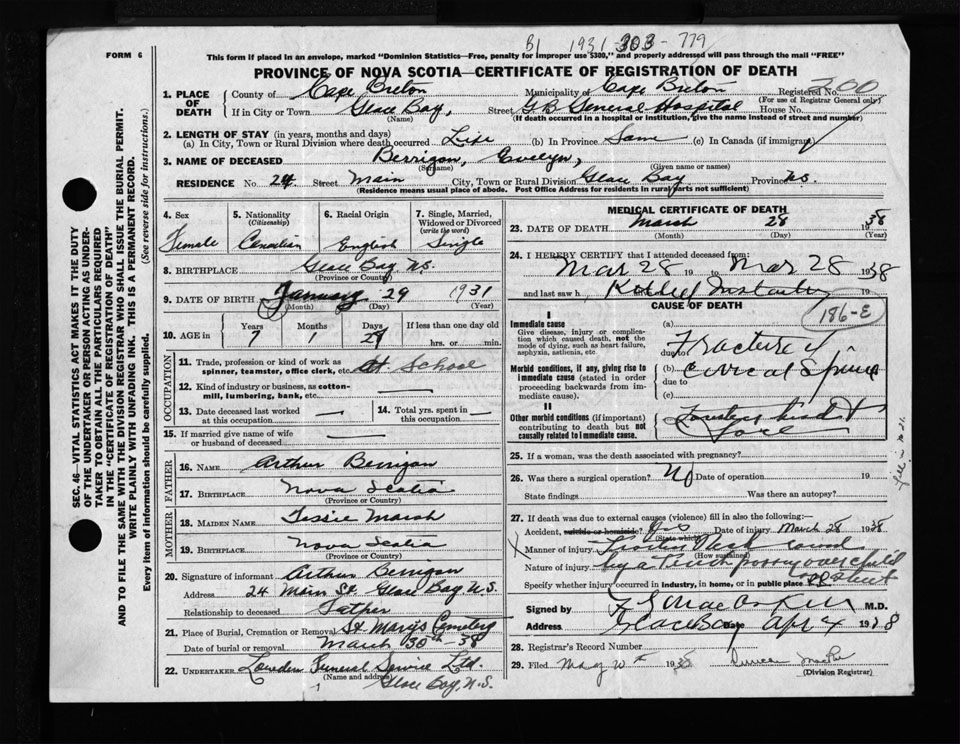 B1 1931-303-779
FORM 6
This form if placed in an envelope, marked "Dominion Statistics—Free, penalty for improper use $300," and properly addressed will pass through the mail "FREE"
PROVINCE OF NOVA SCOTIA—CERTIFICATE OF REGISTRATION OF DEATH
1. PLACE OF DEATH County of Cape Breton Municipality of Cape Breton Registered No. 700
(For use of Registrar General only)
If in City or Town Glace Bay, Street G.B. General Hospital House No.
(Name) (If death occurred in a hospital or institution, give the name instead of street and number)
2. LENGTH OF STAY (in years, months and days)
(a) In City, Town or Rural Division where death occurred Life (b) In Province Same (c) In Canada (if immigrant)
3. NAME OF DECEASED Berrigan, Evelyn,
(Surname) (Given name or names)
RESIDENCE No. 24 Street Main City, Town or Rural Division Glace Bay Province N.S.
(Residence means usual place of abode. Post Office Address for residents in rural parts not sufficient)
4. Sex 5. Nationality (Citizenship) 6. Racial Origin 7. Single, Married, Widowed or Divorced (write the word)
Female Canadian English Single
8. BIRTHPLACE Glace Bay N.S.
(Province or Country)
9. DATE OF BIRTH January 29 1931
(Month) (Day) (Year)
10. AGE in Years Months Days If less than one day old
7 1 29 hrs. or min.
OCCUPATION
11. Trade, profession or kind of work as spinner, teamster, office clerk, etc. At School
12. Kind of industry or business, as cotton-mill, lumbering, bank, etc.
13. Date deceased last worked at this occupation 14. Total yrs. spent in this occupation
15. If married give name of wife or husband of deceased
FATHER
16. NAME Arthur Berrigan
17. BIRTHPLACE Nova Scotia
(Province or Country)
MOTHER
18. MAIDEN NAME Tessie Marsh
19. BIRTHPLACE Nova Scotia
(Province or Country)
20. Signature of informant Arthur Berrigan
Address 24 Main St. Glace Bay N.S.
Relationship to deceased Father
21. Place of Burial, Cremation or Removal St. Mary's Cemetery
Date of burial or removal March 30th - 38
22. UNDERTAKER Lowden Funeral Service Ltd.
(Name and address)
Glace Bay, N.S.
MEDICAL CERTIFICATE OF DEATH
23. DATE OF DEATH March 28 1938
(Month) (Day) (Year)
24. I HEREBY CERTIFY that I attended deceased from:
Mar 28 19 to Mar 28 1938
and last saw h Killed Instantly 19
CAUSE OF DEATH
186-E
I
Immediate cause (a)
Give disease, injury or complication which caused death, not the mode of dying, such as heart failure, asphyxia, asthenia, etc.
due to Fracture of
Morbid conditions, if any, giving rise to immediate cause (stated in order proceeding backwards from immediate cause). (b) Cervical Spine
due to
(c)
II
Other morbid conditions (if important) contributing to death but not causally related to immediate cause.
25. If a woman, was the death associated with pregnancy?
26. Was there a surgical operation? No Date of operation 19
State findings Was there an autopsy?
27. If death was due to external causes (violence) fill in also the following:—
Accident, suicide or homicide? Yes Date of injury March 28 1938
(State which)
Manner of injury
(How sustained)
Nature of injury
Specify whether injury occurred in industry, in home, or in public place Street
Signed by M.D.
Address Glace Bay Date Apr 4 1938
28. Registrar's Record Number
29. Filed May 1938
(Division Registrar)
SEC. 46—VITAL STATISTICS ACT MAKES IT THE DUTY OF THE UNDERTAKER OR PERSON ACTING AS UNDERTAKER TO OBTAIN ALL THE PARTICULARS REQUIRED IN THE "CERTIFICATE OF REGISTRATION OF DEATH" AND TO FILE THE SAME WITH THE DIVISION REGISTRAR WHO SHALL ISSUE THE BURIAL PERMIT.
WRITE PLAINLY WITH UNFADING INK. THIS IS A PERMANENT RECORD.
Every item of information should be carefully supplied. (See reverse side for instructions.)